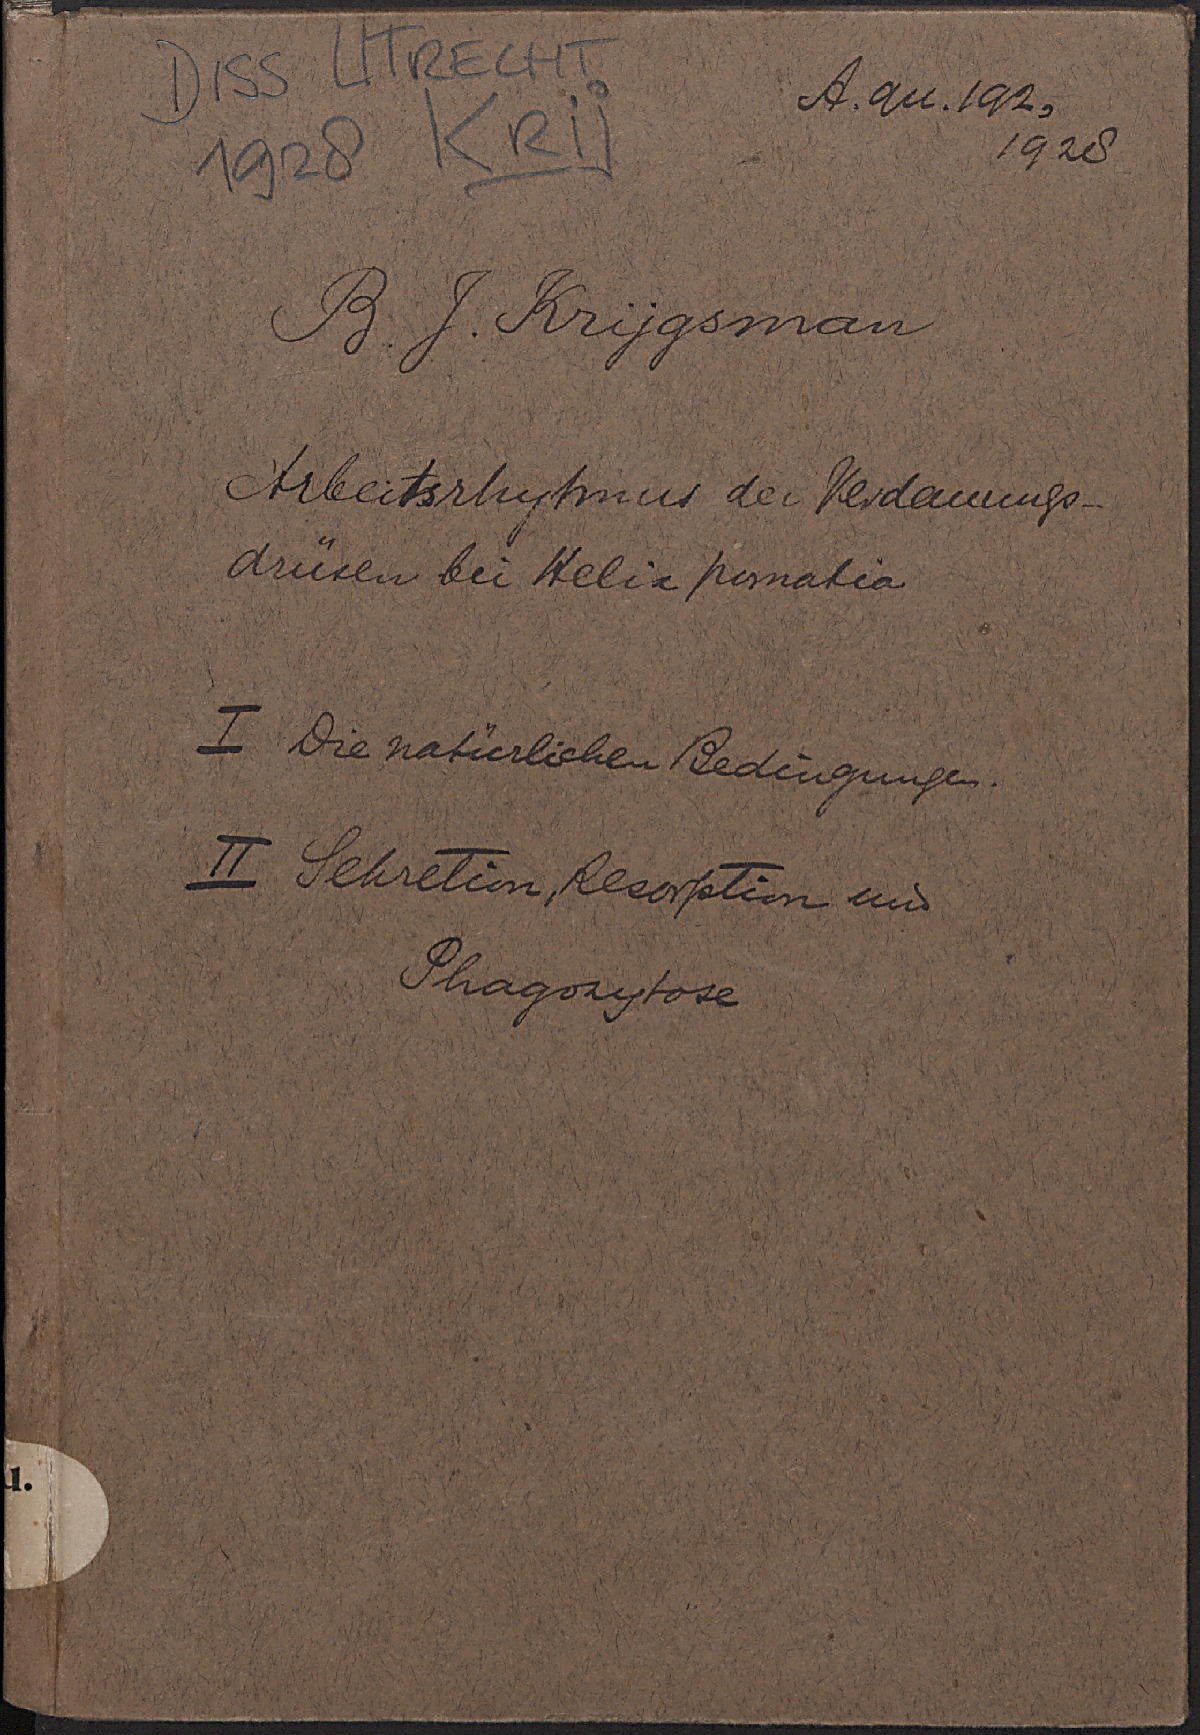 DISS UTRECHT
1928 KRIJ
A. qu. 192,
1928
B. J. Krijgsman
Arbeitsrhytmus der Verdauungs-
drüsen bei Helix pomatia
I Die natürlichen Bedingungen.
II Sekretion, Resorption und
Phagozytose
u.